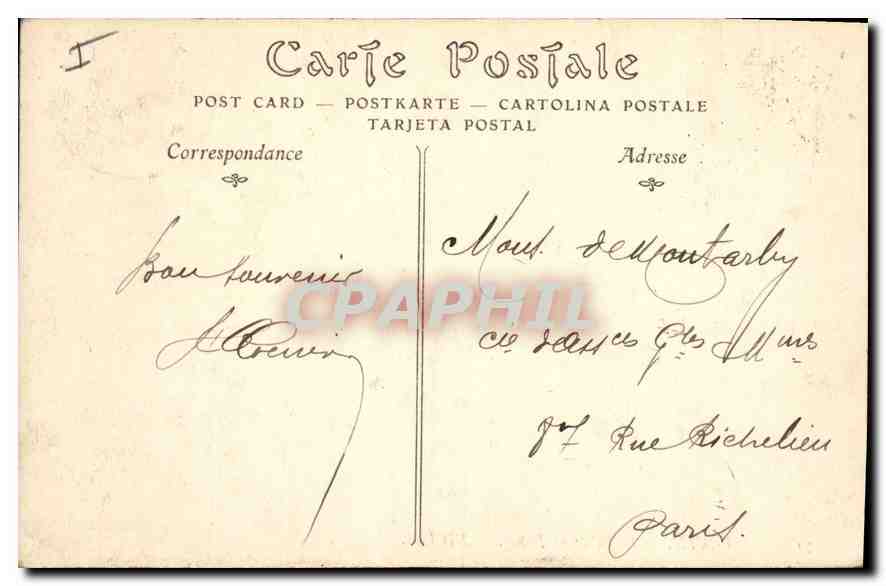 I
Carte Postale
POST CARD — POSTKARTE — CARTOLINA POSTALE
TARJETA POSTAL
Correspondance
Bon souvenir
CPAPHIL
Adresse
Mons. de Montarby
Cie d'Assces Gles M
87 Rue Richelieu
Paris.